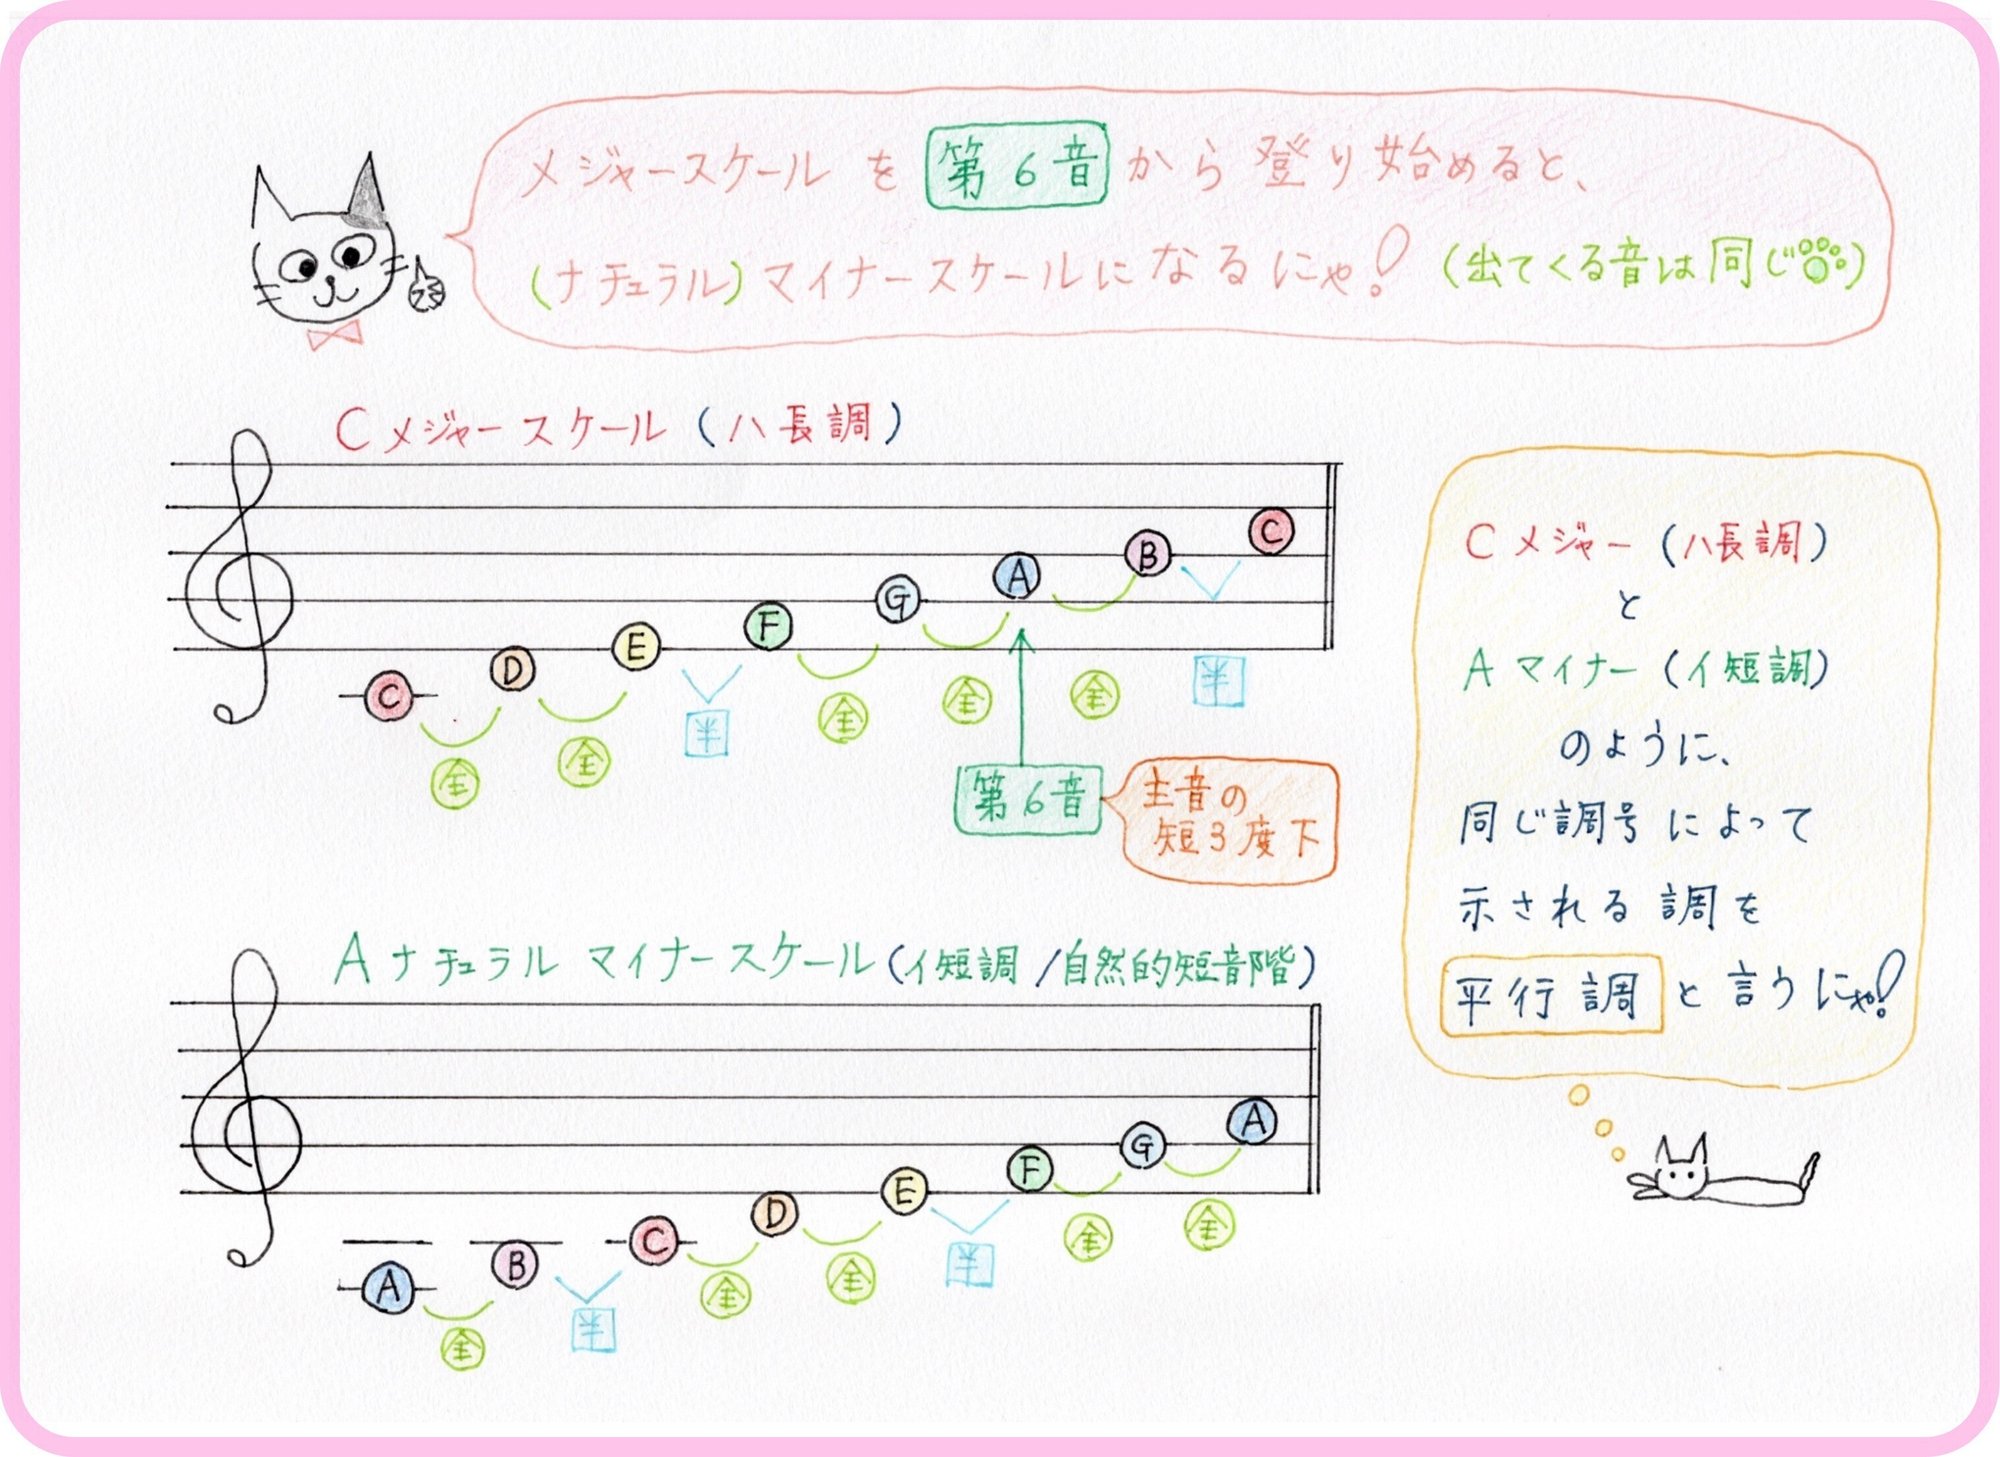 メジャースケール を 第6音 から 登り始めると、
(ナチュラル)マイナースケールに なる にゃ! (出てくる音は同じ)
Cメジャースケール (ハ長調)
C D E F G A B C
全 全 半 全 全 全 半
第6音
主音の
短3度下
Aナチュラル マイナースケール(イ短調/自然的短音階)
A B C D E F G A
全 半 全 全 半 全 全
Cメジャー (ハ長調)
と
Aマイナー (イ短調)
のように、
同じ調号 によって
示される 調を
平行調 と 言うにゃ!